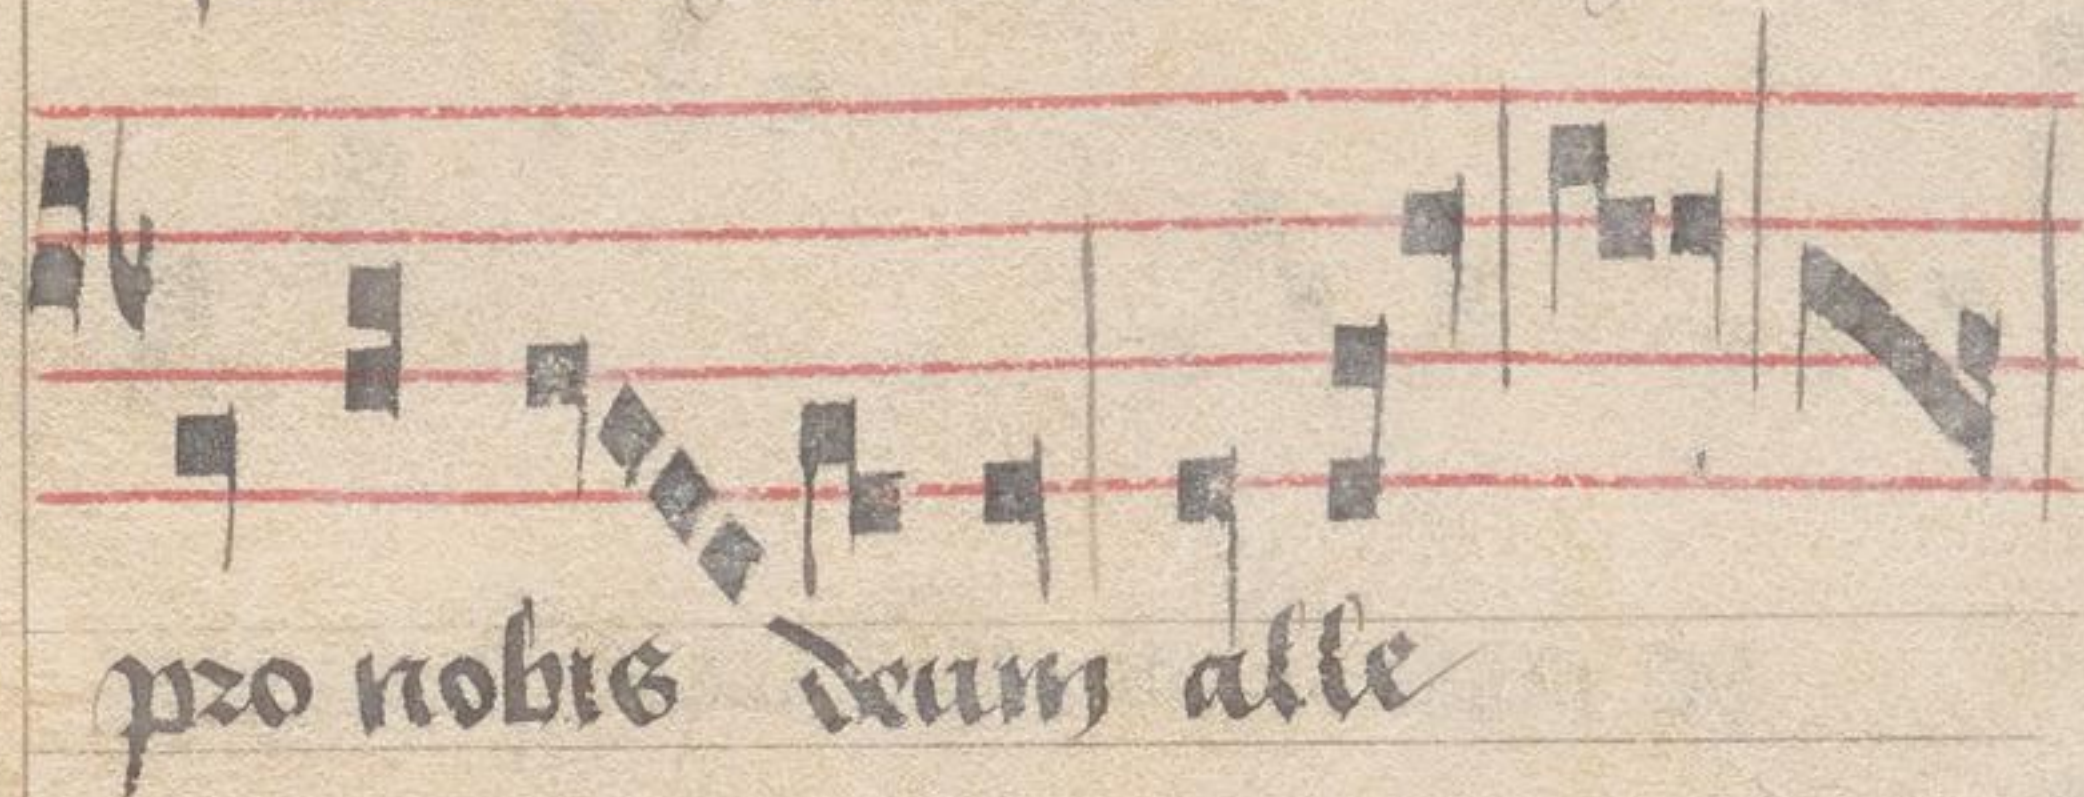 pro nobis deum alle